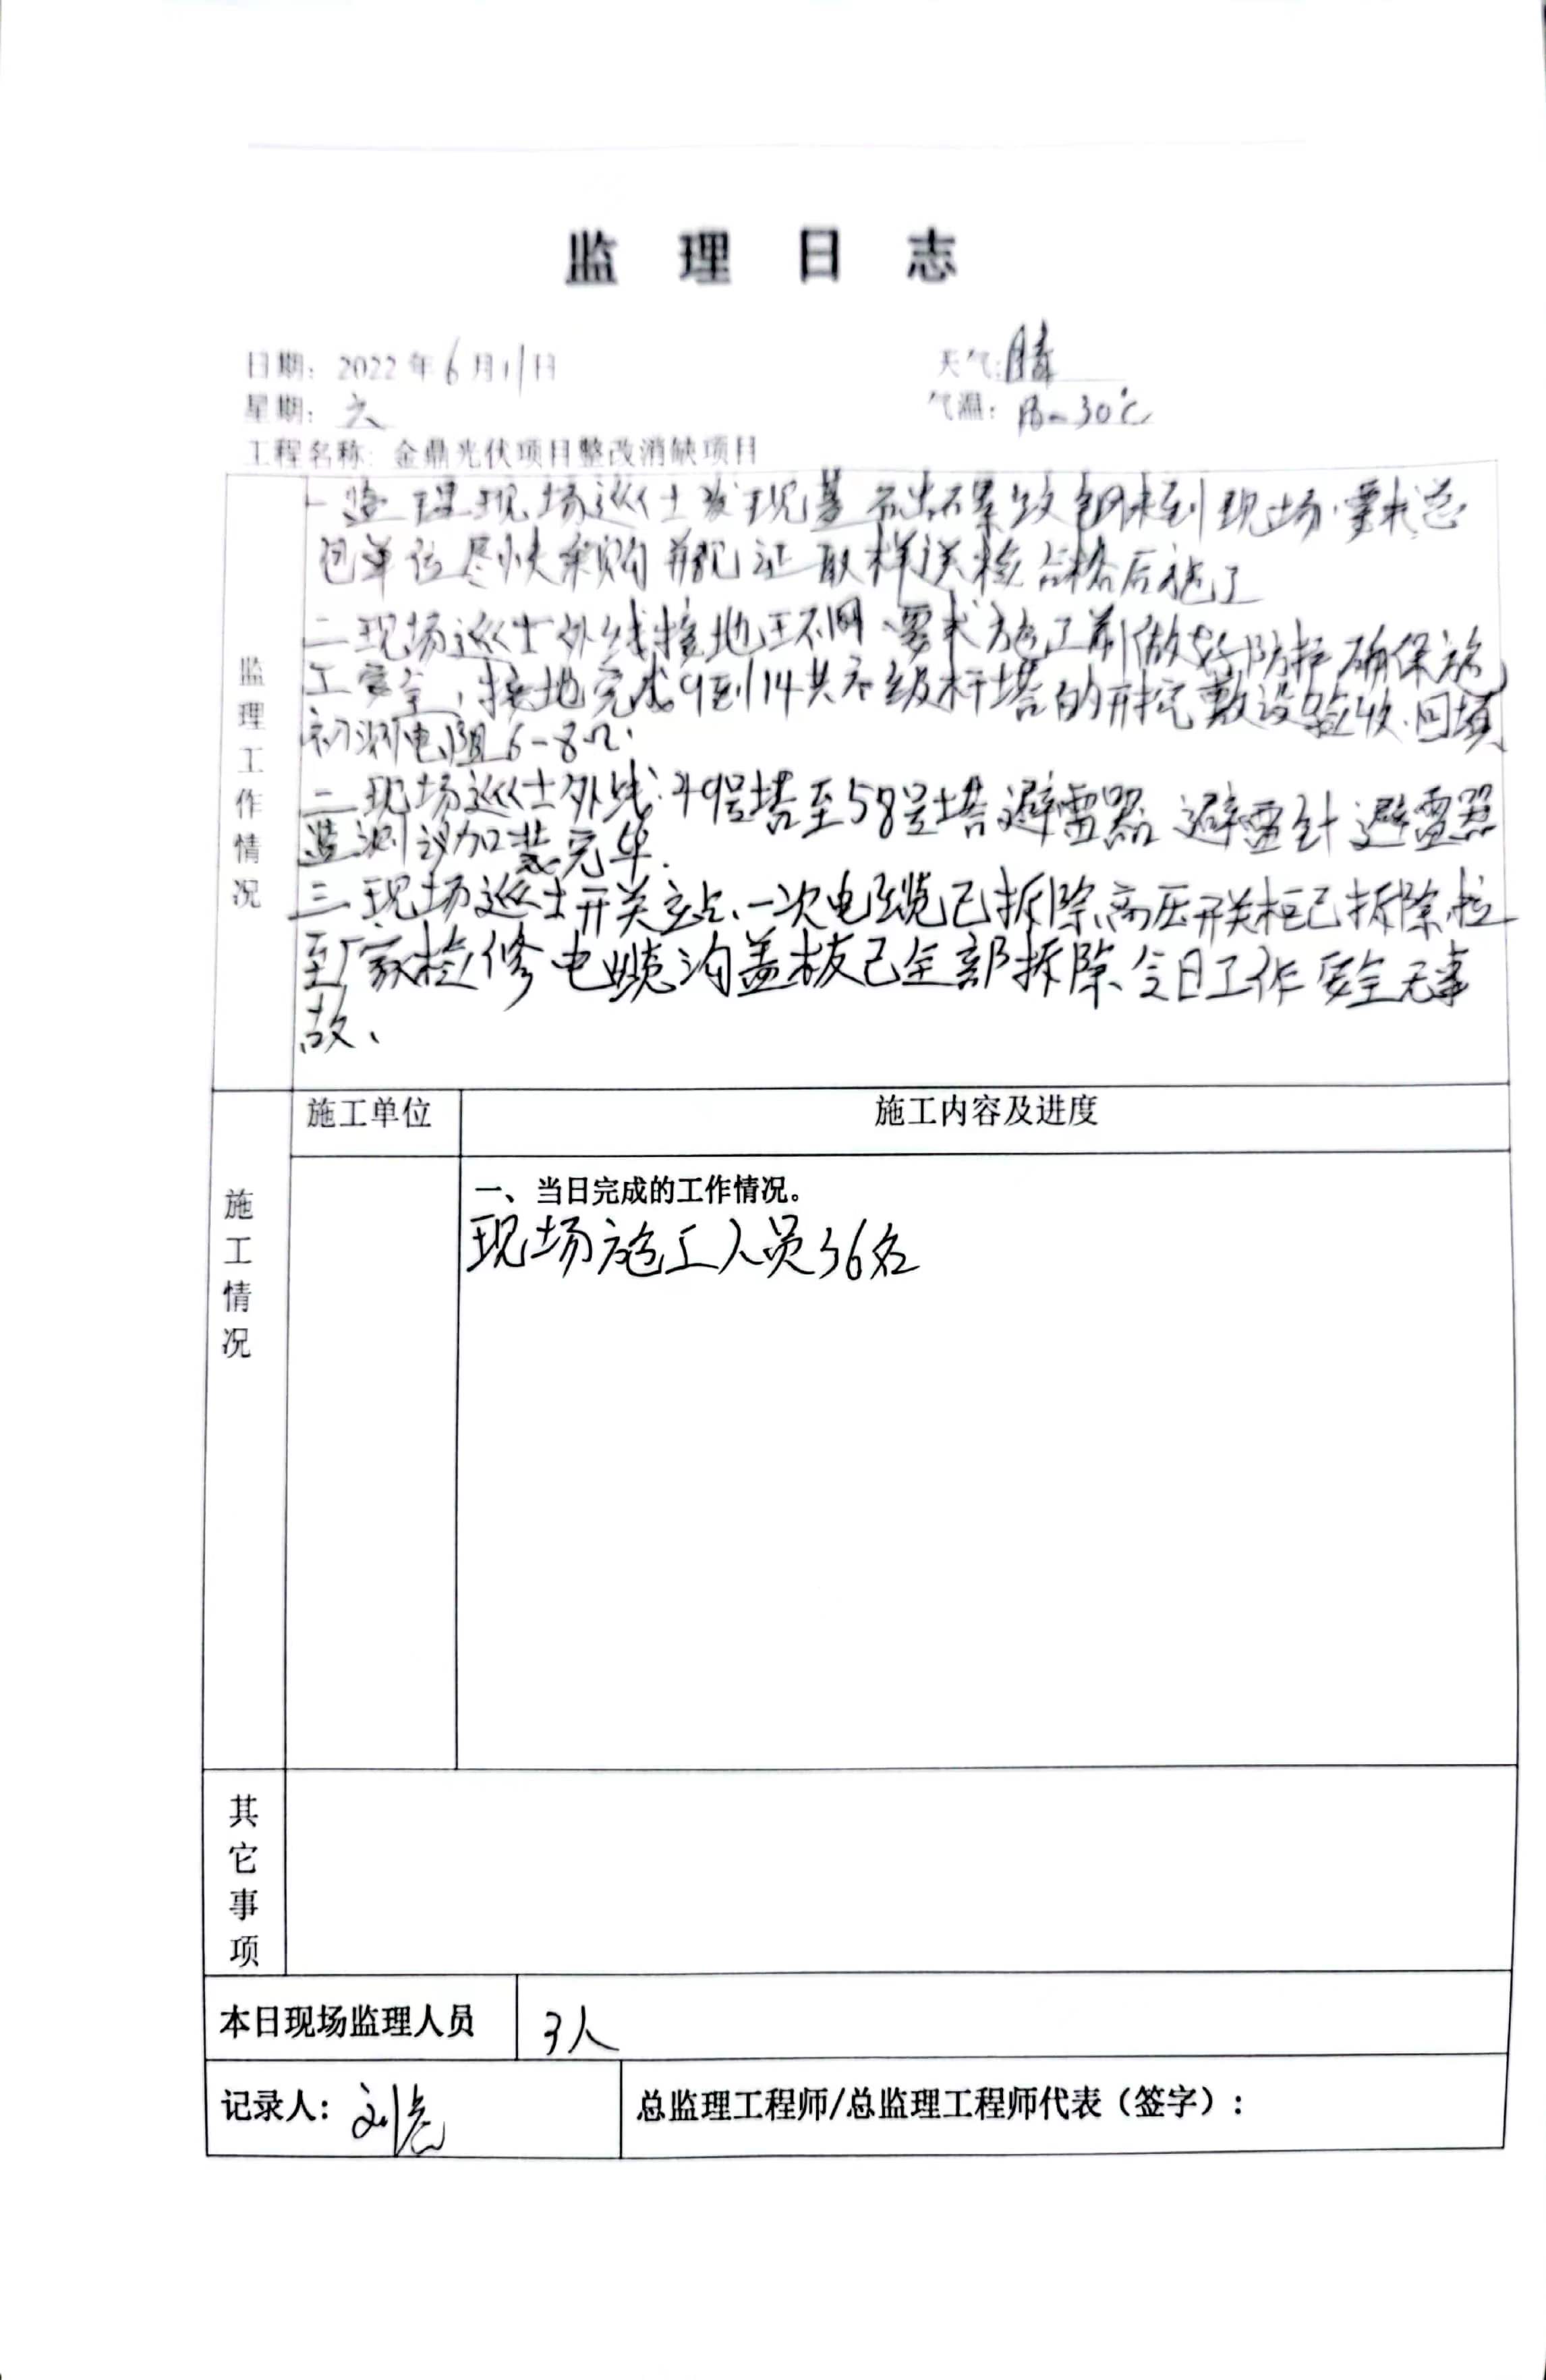 监 理 日 志
日期：2022年6月11日
天气：晴
星期：六
气温：18-30℃
工程名称：金鼎光伏项目整改消缺项目
监理工作情况
一监理现场巡士发现基础未到现场、要求总
包单位尽快采购并见证取样送检合格后施工
二现场巡士外线接地环网、要求施工前做好防护确保施
工安全，接地完成9到14共杆塔的开挖敷设验收、回填
初测电阻6-8Ω.
二现场巡士外线：49号塔至58号塔避雷器 避雷针 避雷器
监测议加装完毕.
三现场巡士开关站、一次电缆已拆除、高压开关柜已拆除、拉
至厂家检修 电缆沟盖板已全部拆除、今日工作安全无事
故、
施工单位
施工内容及进度
施工情况
一、当日完成的工作情况。
现场施工人员36名
其它事项
本日现场监理人员
3人
记录人：刘亮
总监理工程师/总监理工程师代表（签字）：